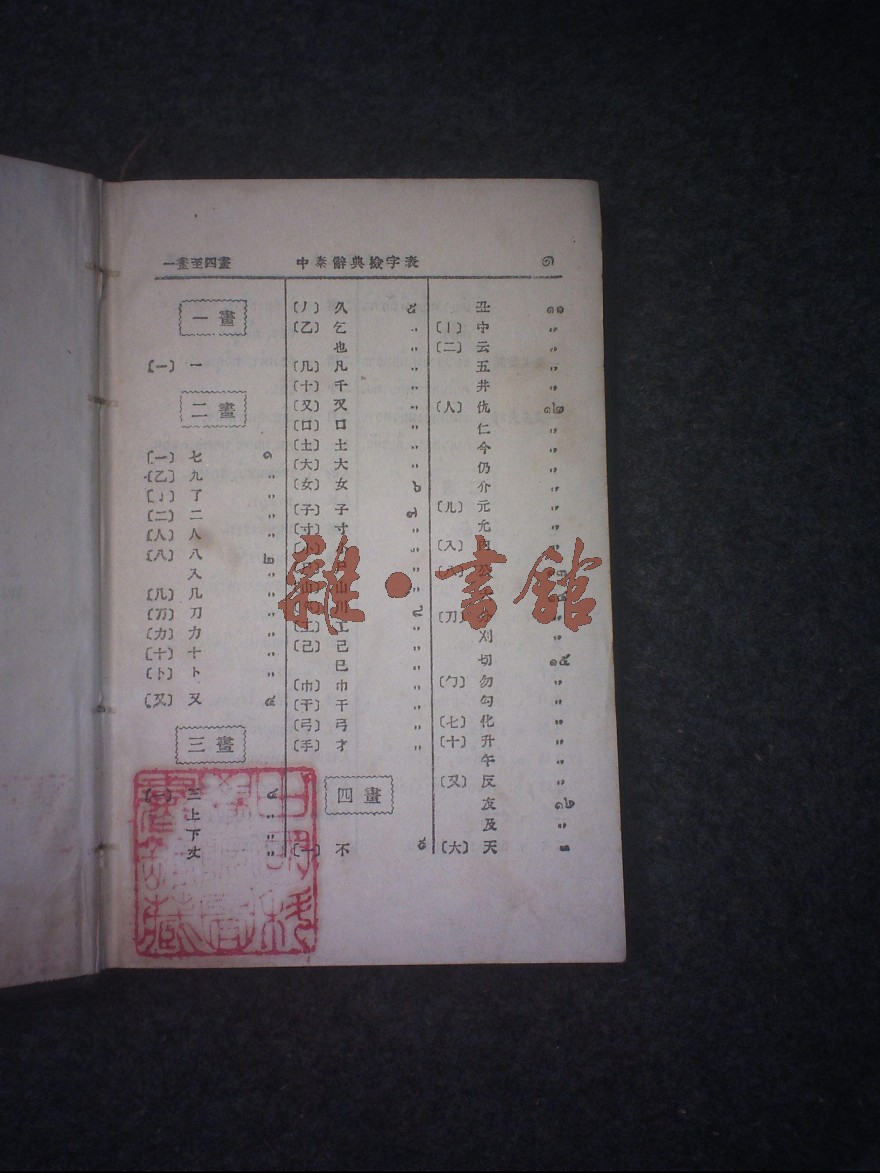 一畫至四畫 中泰辭典撿字表 ๑
一畫
〔一〕 一
二畫
〔一〕 七 ๑
〔乙〕 九 〃
〔亅〕 了 〃
〔二〕 二 〃
〔人〕 人 〃
〔八〕 八 ๒
入 〃
〔几〕 几 〃
刀 〃
〔力〕 力 〃
〔十〕 十 〃
〔卜〕 卜 〃
〔又〕 又 ๔
三畫
〔一〕 三 ๔
上 〃
下 〃
丈 〃
〔丿〕 久 ๕
〔乙〕 乞 〃
也 〃
〔几〕 凡 〃
〔十〕 千 〃
〔又〕 叉 〃
〔口〕 口 〃
〔土〕 土 〃
〔大〕 大 〃
〔女〕 女 ๖
〔子〕 子 ๗
〔寸〕 寸 〃
山
川
〔工〕 工 〃
〔己〕 己 〃
巳 〃
〔巾〕 巾 〃
〔干〕 干 〃
〔弓〕 弓 〃
〔手〕 才 〃
四畫
〔一〕 不
丑 ๑๑
〔丨〕 中 〃
〔二〕 云 〃
五 〃
井 〃
〔人〕 仇 ๑๒
仁 〃
今 〃
仍 〃
介 〃
〔儿〕 元 〃
允 〃
〔入〕 內
公
〔刀〕
刈 〃
切 ๑๕
〔勹〕 勿 〃
勾 〃
〔匕〕 化 〃
〔十〕 升 〃
午 〃
〔又〕 反 〃
友 ๑๖
及 〃
〔大〕 天 〃
雜·書館